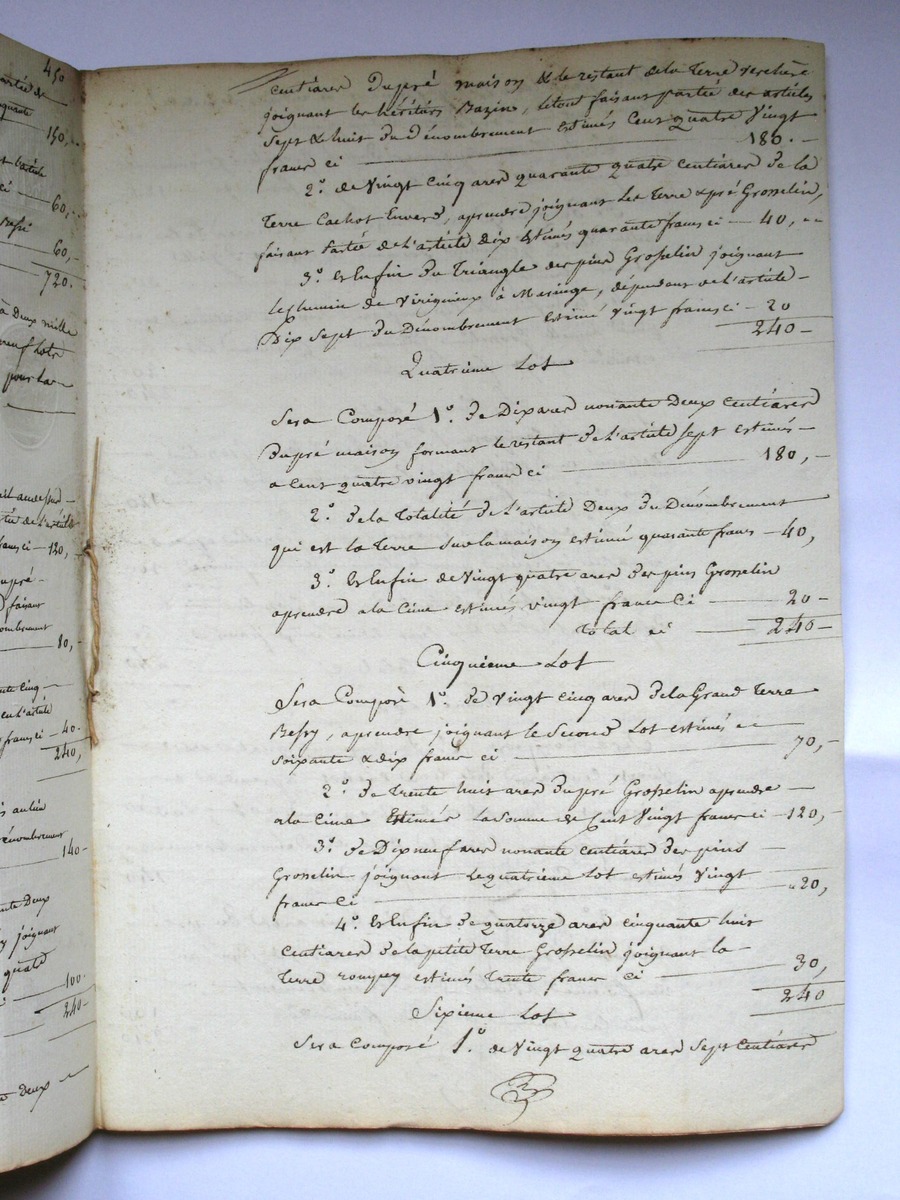 450
150,
60,
60,
720.
à Deux mille
neuf Lots
pour la
120,
80,
40.
240,
140
100.
240
Deux
centiares Dupré maison & le restant de la Terre verchere
joignant les héritiers Bazin, letout faisant partie des articles
Sept & huit du Dénombrement estimés Cent quatre Vingt
francs ci 180.
2° de Vingt Cinq ares quarante quatre centiares de la
Terre Cachot Envers, aprendre joignant les Terre & pré Grosselin,
faisant Partie de l'article dix Estimés quarante francs ci 40,
3° et Enfin du Triangle des pins Grosselin joignant
le chemin de Virigneux à Maringe, dépendant de l'article
Dix Sept du Dénombrement estimé Vingt francs ci 20
240
Quatrieme Lot
Sera Composé 1° de Dix ares nonante Deux Centiares
Dupré maison formant le restant de l'article Sept estimés
a Cent quatre vingt francs ci 180,
2° de la Totalité de l'article Deux du Dénombrement
qui est la Terre Sur la maison estimé quarante francs 40,
3° et Enfin de Vingt quatre ares des pins Grosselin
aprendre a la Cime estimés vingt francs Ci 20
Total ci 240
Cinquieme Lot
Sera Composé 1° de Vingt Cinq ares de la Grand Terre
Bessy, aprendre joignant le Second Lot estimés
soixante & dix francs ci 70,
2° de Trente huit ares Dupré Grosselin aprendre
a la Cime Estimés La Somme de Cent Vingt francs ci 120,
3° de Dix neuf ares nonante centiares des pins
Grosselin joignant Le quatrieme Lot estimés Vingt
francs Ci 20,
4° et Enfin de quatorze ares cinquante huit
Centiares de la petite Terre Grosselin joignant la
Terre rompey estimés Trente francs ci 30,
240
Sixieme Lot
Sera Composé 1° de Vingt quatre ares Sept Centiares